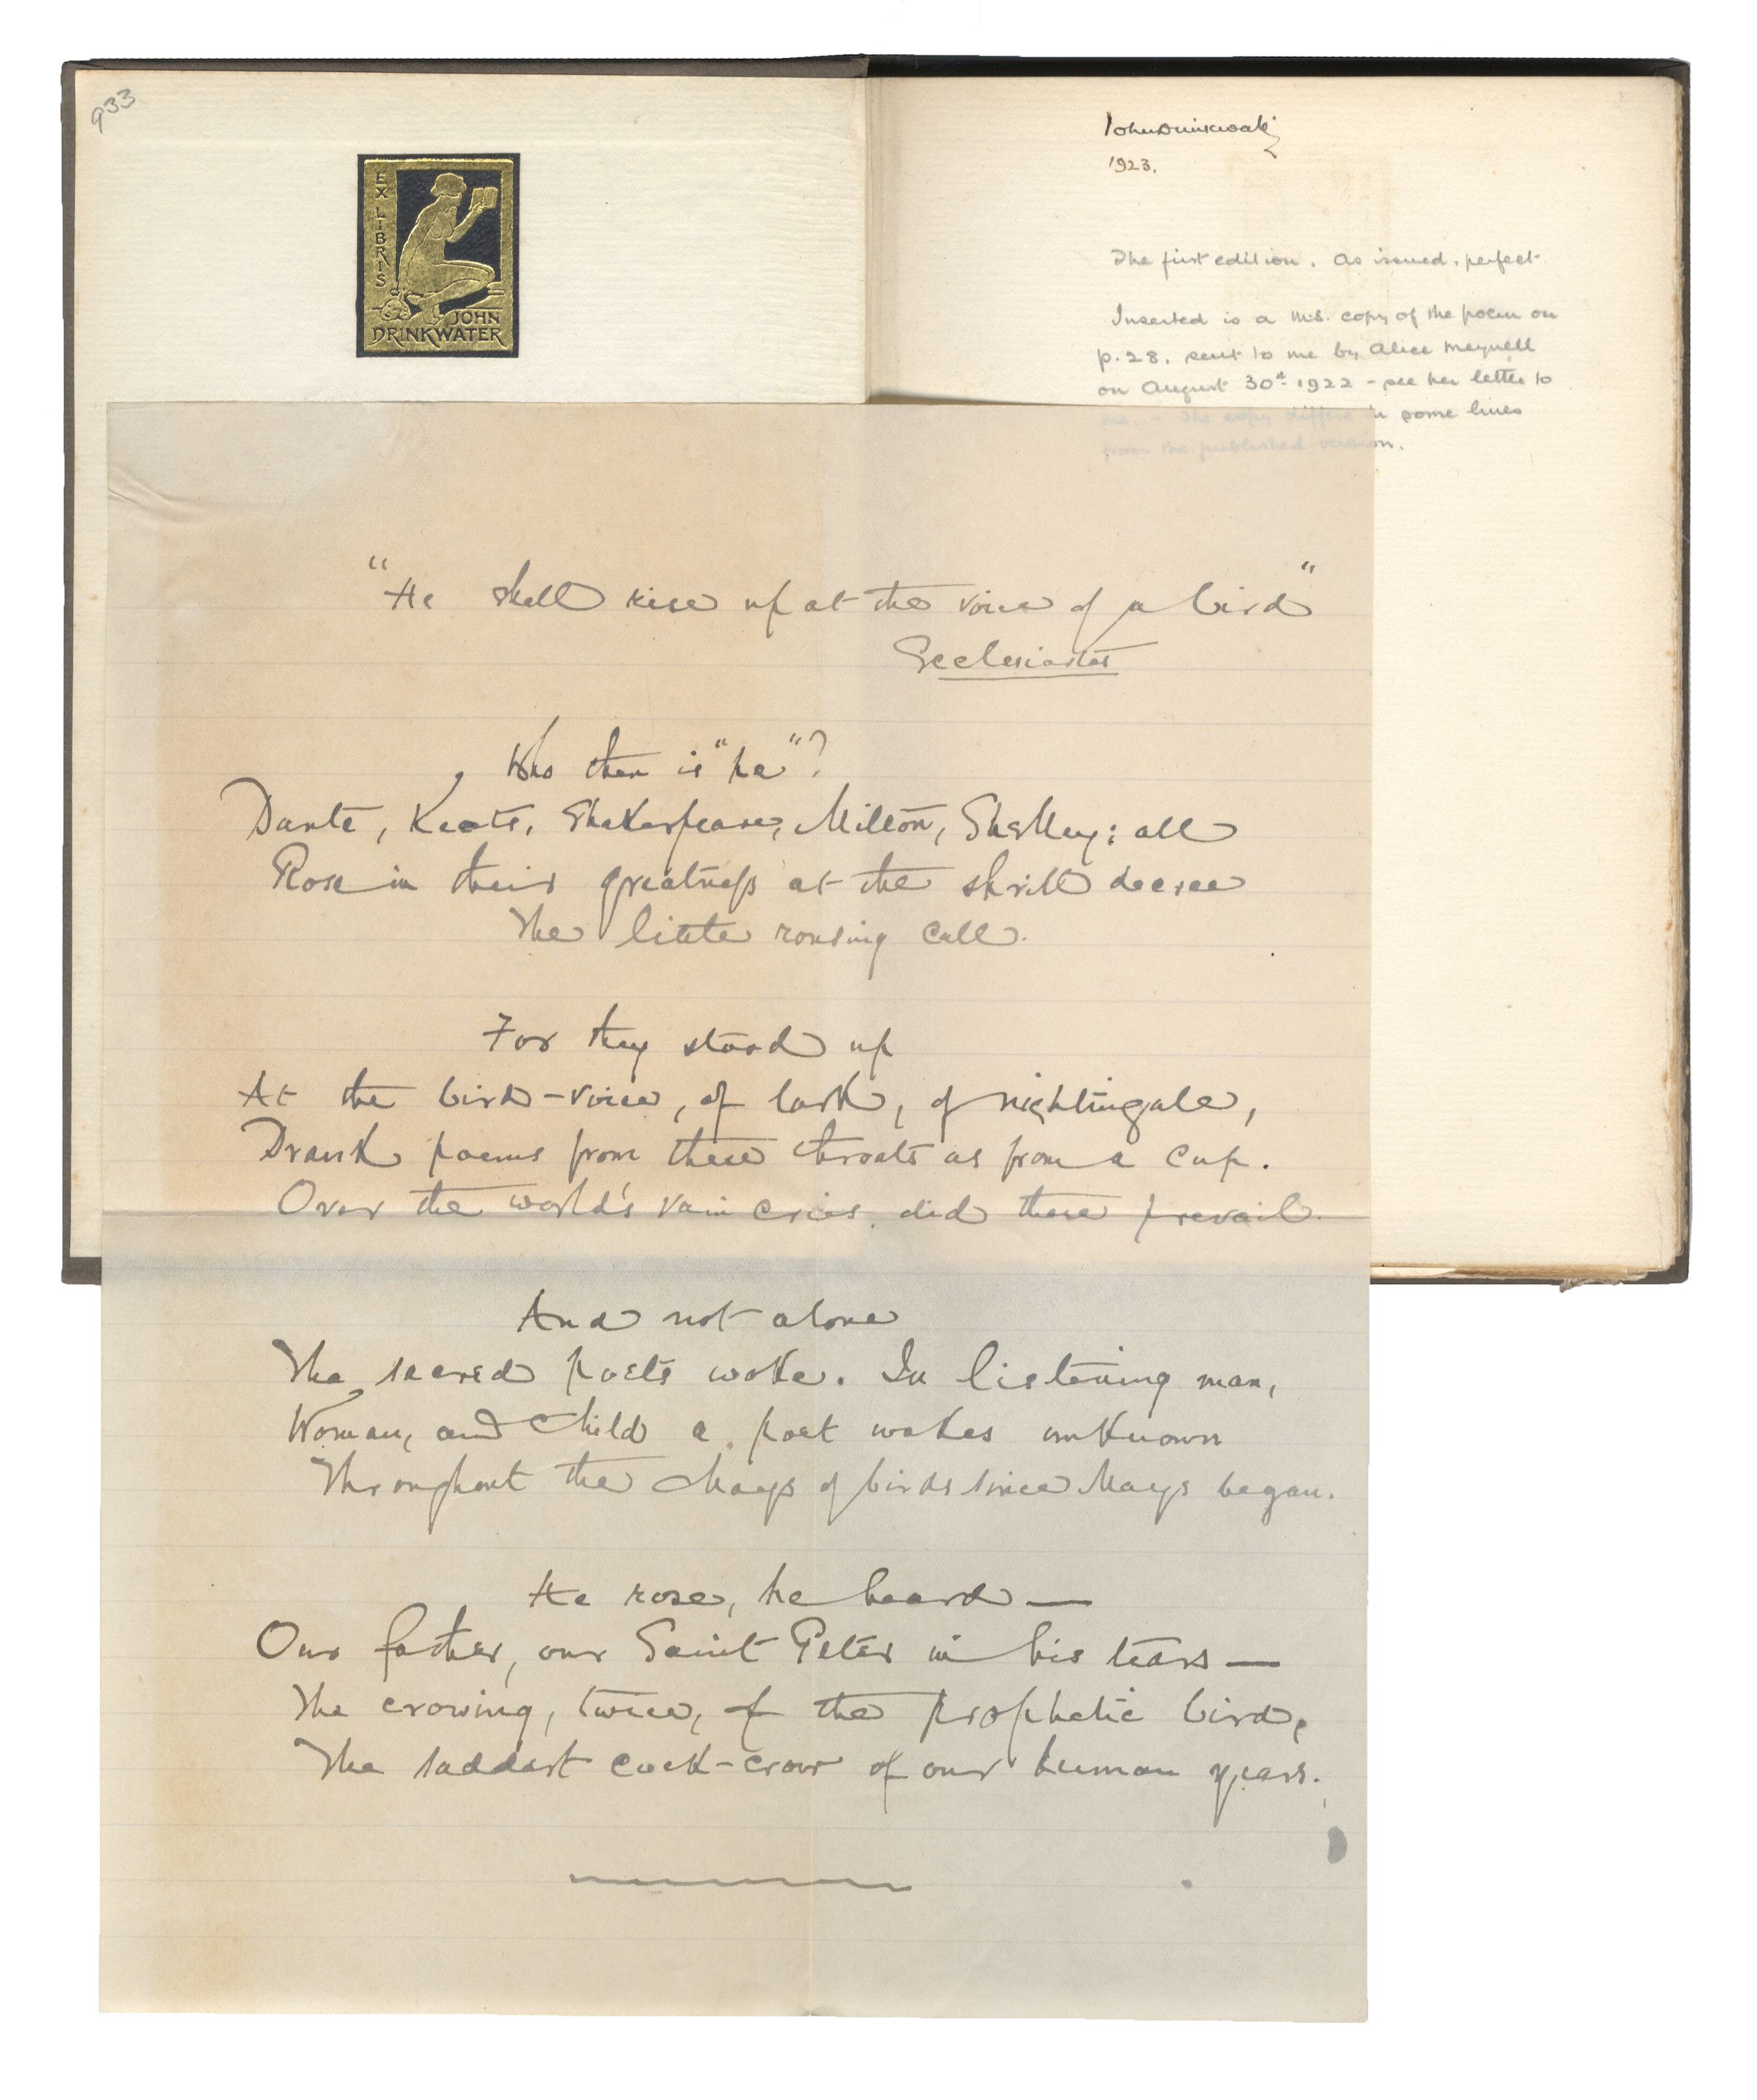 933
EX LIBRIS
JOHN
DRINKWATER
John Drinkwater
1923.
The first edition. As issued, perfect.
Inserted is a ms. copy of the poem on
p. 28. sent to me by Alice Meynell
on August 30th 1922 – see her letter to
me. – The copy differs in some lines
from the published version.
"He shall rise up at the voice of a bird"
Ecclesiastes
Who then is "he"?
Dante, Keats, Shakespeare, Milton, Shelley; all
Rose in their greatness at the shrill decree
The little rousing call.
For they stood up
At the bird-voice, of lark, of nightingale,
Drank poems from these throats as from a cup.
Over the world's vain cries did these prevail.
And not alone
The sacred poets woke. In listening man,
Woman, and child a poet wakes unknown
Throughout the Mays of birds since Mays began.
He rose, he heard —
Our father, our Saint Peter in his tears —
The crowing, twice, of the prophetic bird,
The saddest cock-crow of our human years.